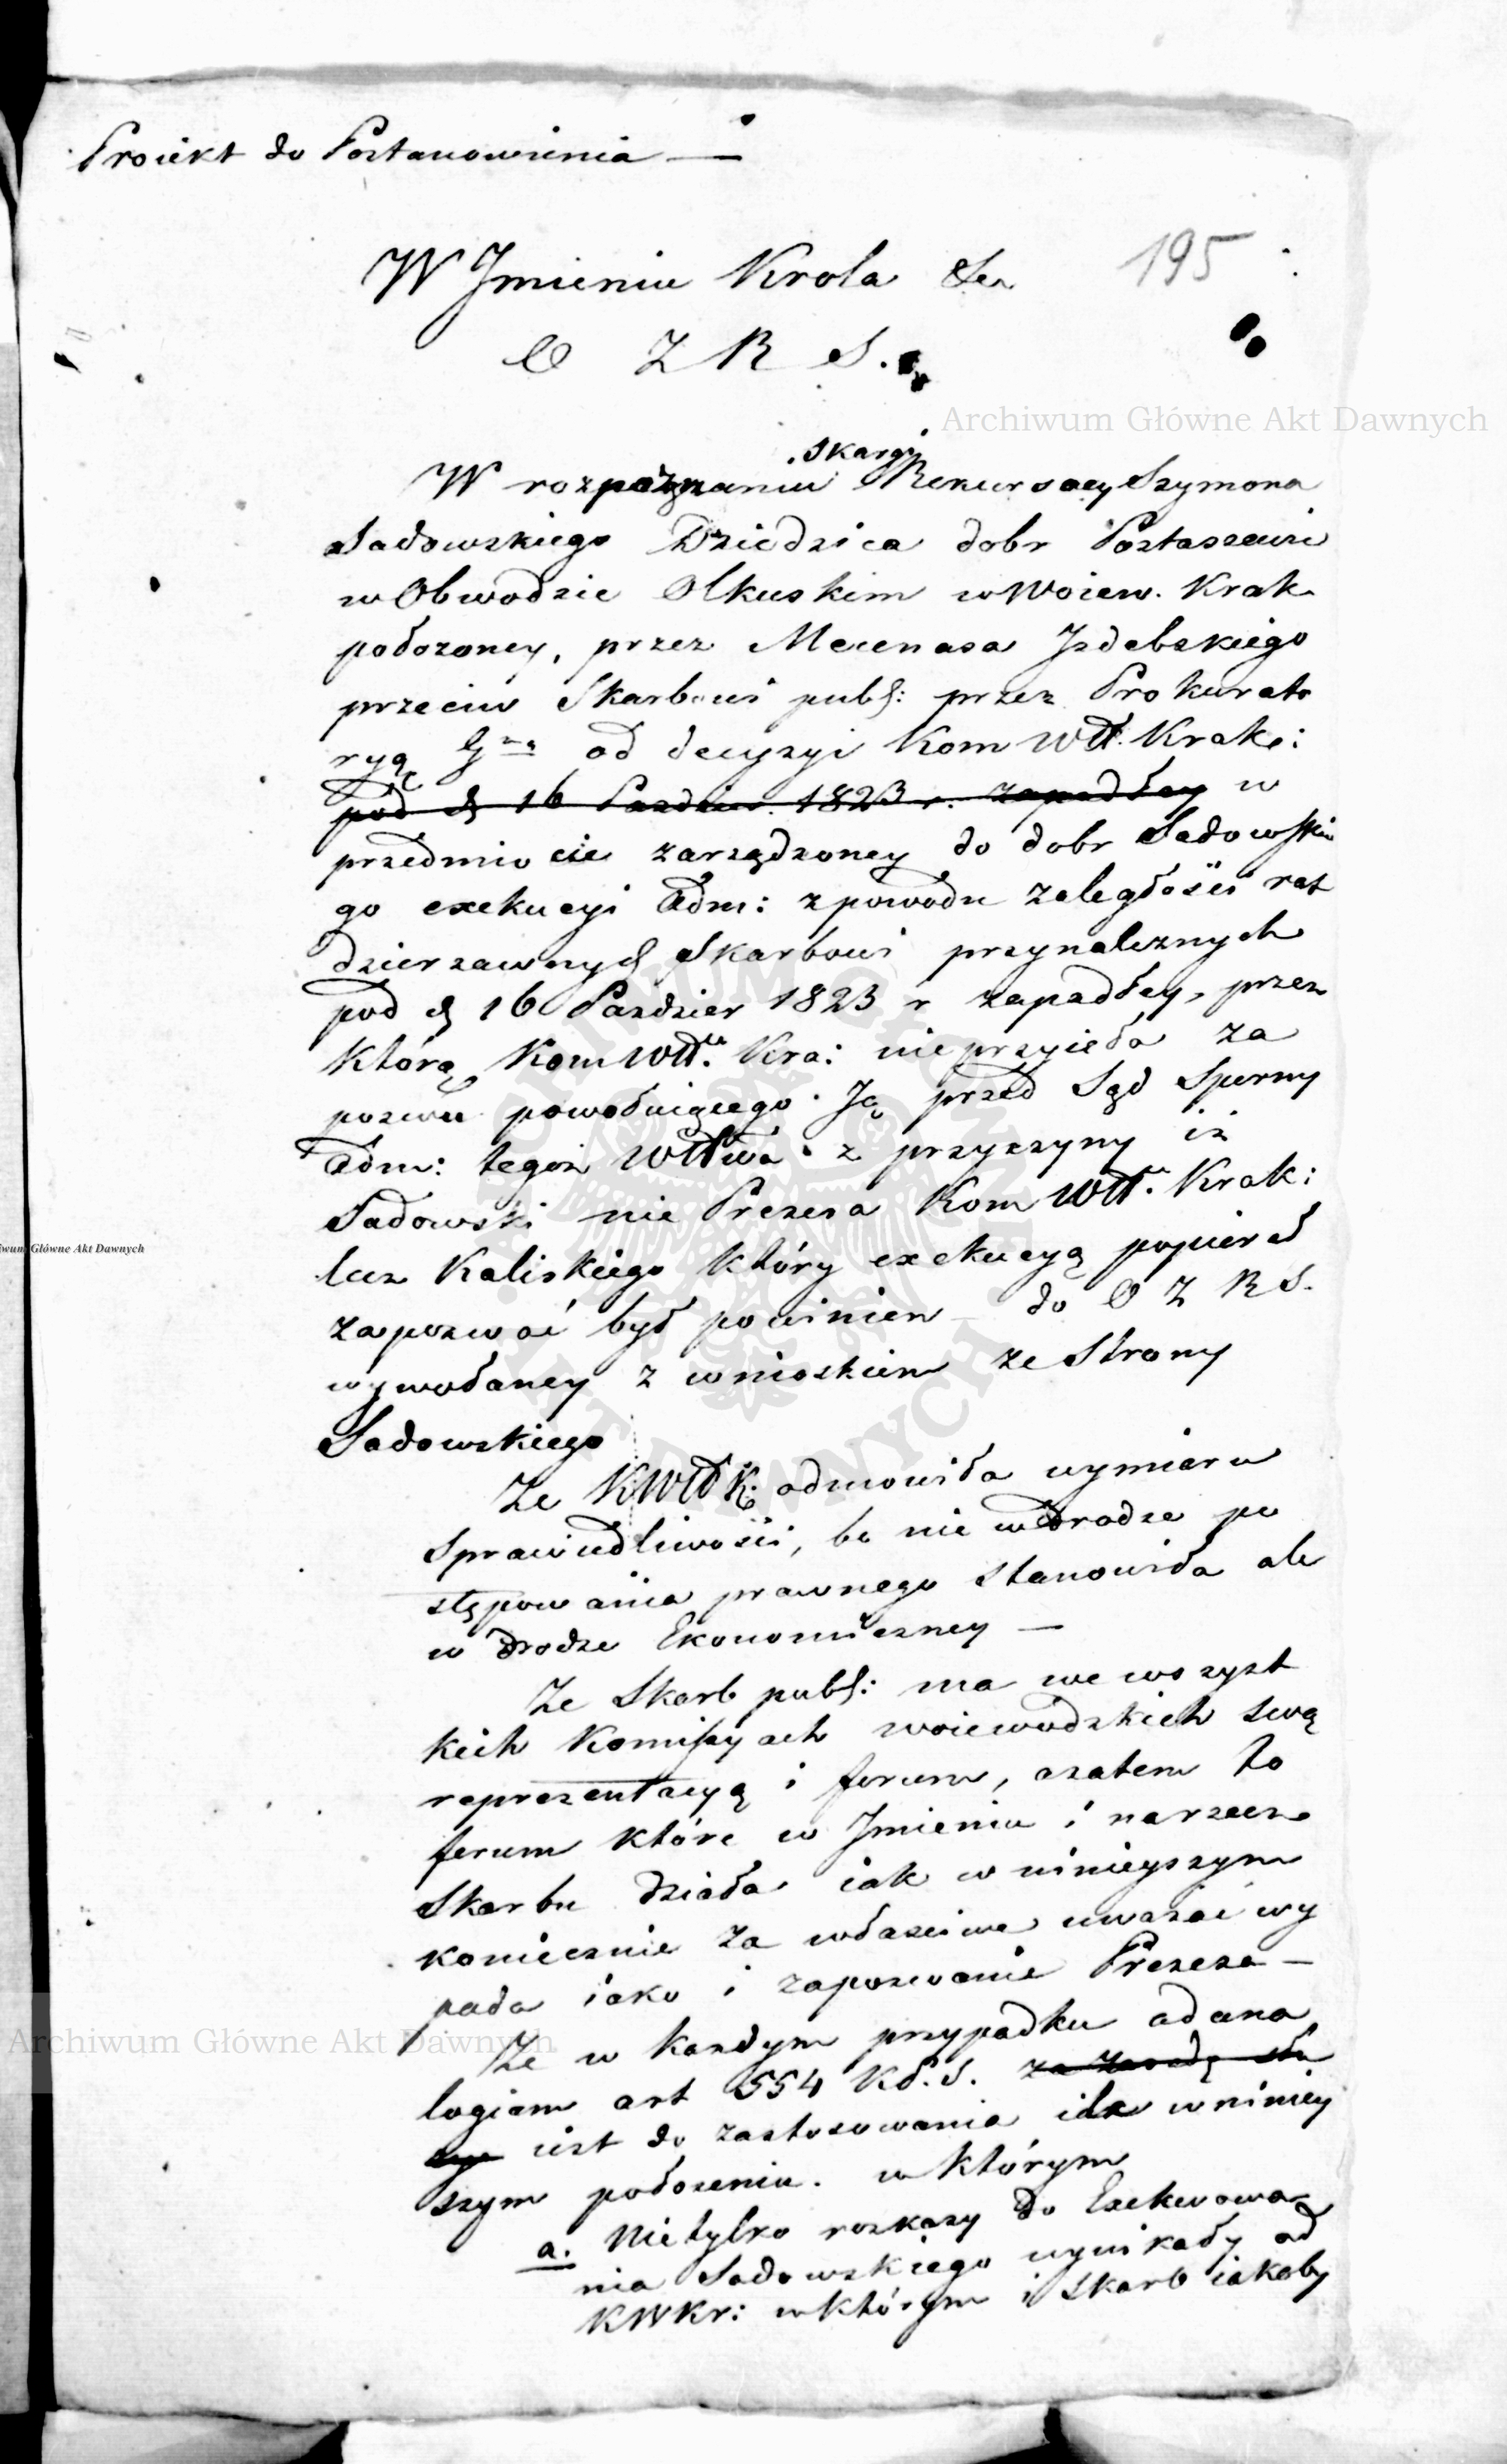 Proiekt do Postanowienia —
195
W Jmieniu Krola &ca
O Z R S.
skargi
W rozpoznaniu Rekursowey Szymona
Sadowskiego Dziedzica dobr Postaszowic
w Obwodzie Olkuskim w Woiew. Krak
położoney, przez Mecenasa Jzdebskiego
przeciw Skarbowi publ: przez Prokurato
ryą Gną od decyzyi Kom Wtt. Krak:
pod d 16 Pazdzier. 1823 r. zapadłey w
przedmiocie zarządzoney do dobr Sadowskie
go exekucyi Adm: z powodu zaległości rat
dzierzawnych Skarbowi przynaleznych
pod d 16 Pazdzier 1823 r zapadłey, przez
którą Kom Wtt. Kra: nieprzyięła za
pozwu powołuiącego Ją przed Sąd Sporny
Adm: tegoż Wttwa z przyczyny iż
Sadowski nie Prezesa Kom Wtt. Krak:
lecz Kaliskiego który exekucyą popierał
zapozwać był powinien do O Z R S.
wywołaney z wnioskiem ze Strony
Sadowskiego
Ze KWttK: odmowiła wymiaru
Sprawiedliwości, bo nie w drodze po
stępowania prawnego stanowiła ale
w drodze Ekonomiczney —
Ze Skarb publ: ma we wszyst
kich Kommissyach woiewodzkich swą
reprezentacyą i forum, azatem to
forum które w Jmieniu i narzecz
Skarbu działa iak w ninieyszym
koniecznie za właściwe uważać wy
pada iako i zapozwanie Prezesa —
Ze w każdym przypadku adana
logiam art 554 K.P.S. za zasadę słu
ży iest do zastosowania ile w niniey
szym położeniu. w którym
a. Nietylko rozkazy do Exekwowa
nia Sadowskiego wynikały od
KWKr: w którym i Skarb iakoby
Archiwum Główne Akt Dawnych
Archiwum Główne Akt Dawnych
iwum Główne Akt Dawnych
ARCHIWUM GŁÓWNE AKT DAWNYCH